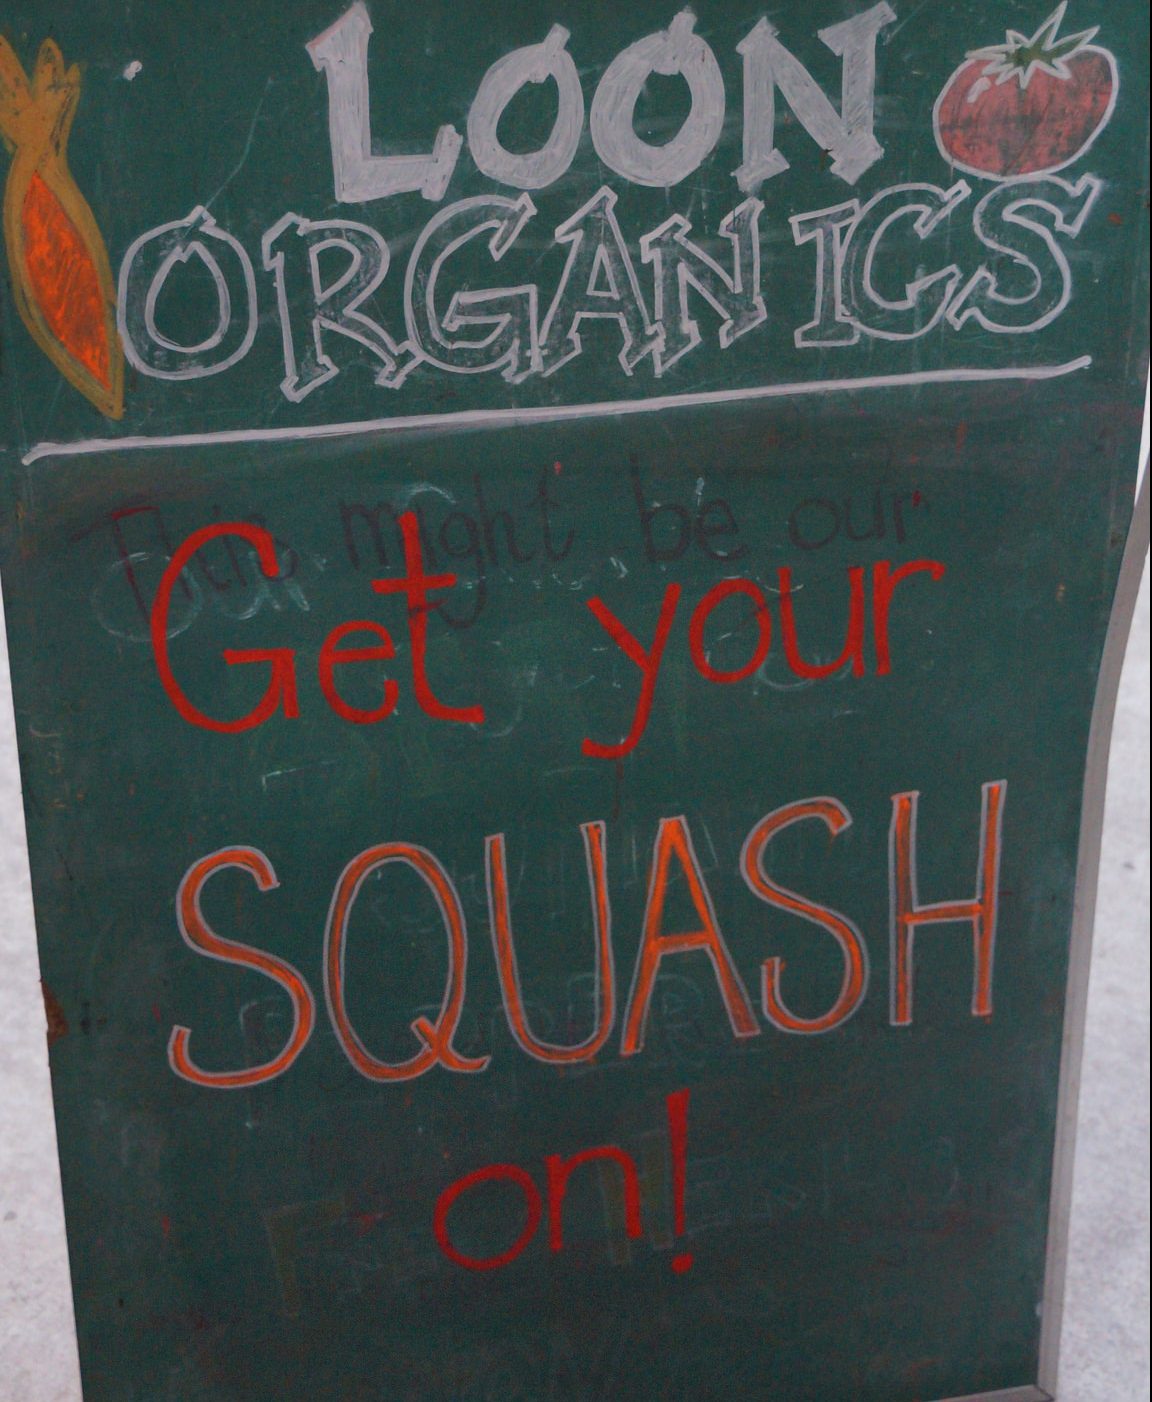 LOON
ORGANICS
This might be our
Get your
SQUASH
on!